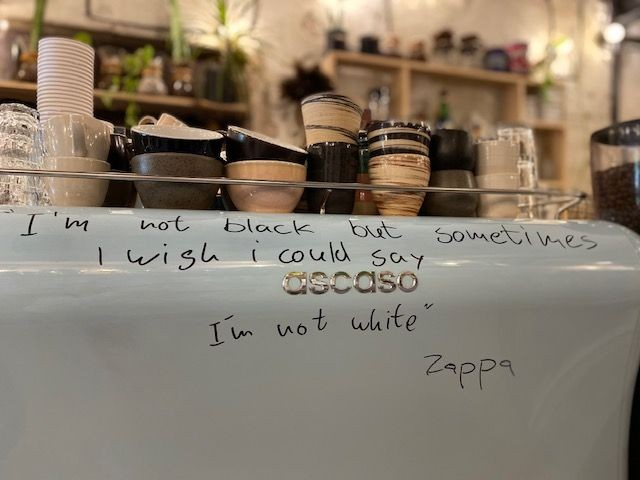 "I'm not black but sometimes
I wish i could say
ascaso
I'm not white"
Zappa